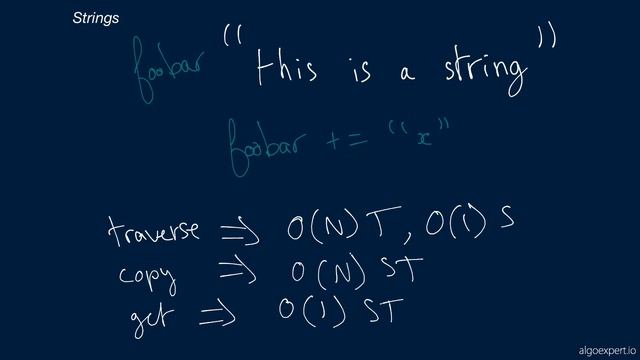 Strings
foobar "this is a string"
foobar += "x"
traverse => O(N) T, O(1) S
copy => O(N) ST
get => O(1) ST
algoexpert.io